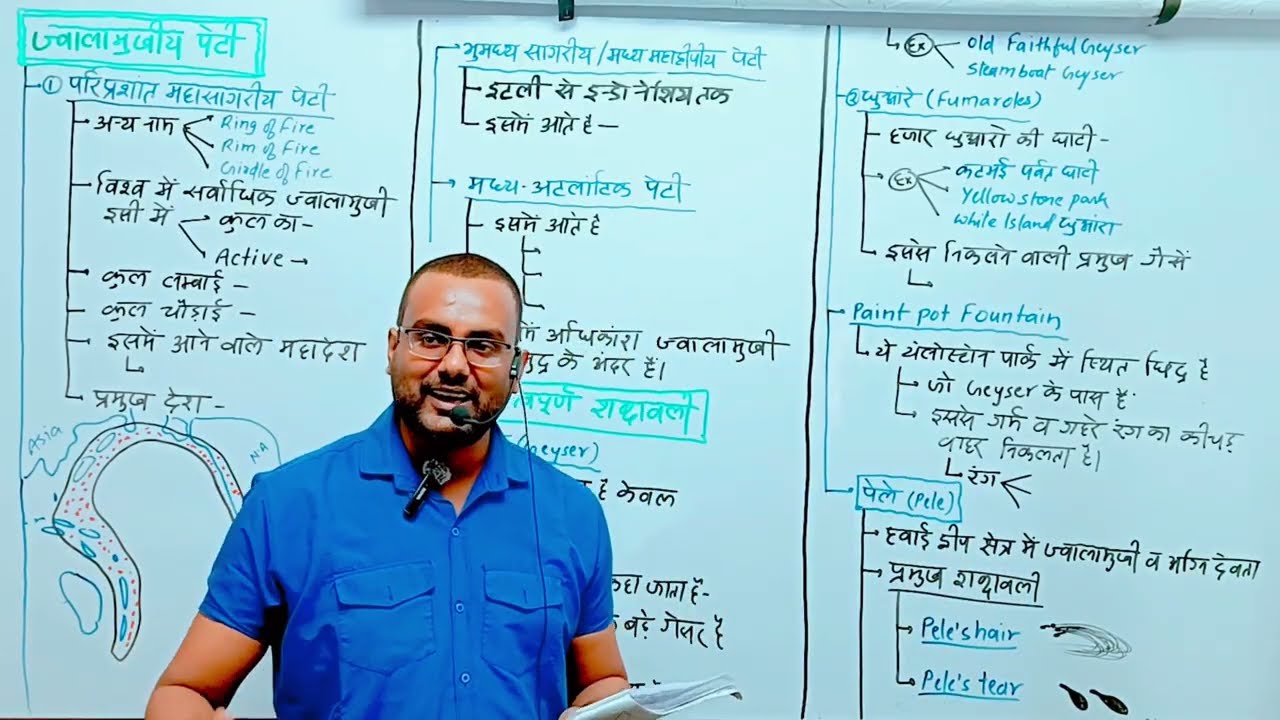 ज्वालामुखीय पेटी
① परिप्रशांत महासागरीय पेटी
अन्य नाम
Ring of Fire
Rim of Fire
Girdle of Fire
विश्व में सर्वाधिक ज्वालामुखी
इसी में
कुल का -
Active →
कुल लम्बाई -
कुल चौड़ाई -
इसमें आने वाले महादेश
प्रमुख देश -
Asia
NA
भुमध्य सागरीय / मध्य महाद्वीपीय पेटी
इटली से इन्डोनेशिया तक
इसमें आते है -
मध्य-अटलांटिक पेटी
इसमें आते है
अधिकांश ज्वालामुखी
के अंदर है।
शब्दावली
है केवल
कहा जाता है -
बड़े गेसर है
Ex
Old Faithful Geyser
Steamboat Geyser
धुआरे (Fumaroles)
हजार धुआरो की घाटी -
Ex
कटमई पर्वत घाटी
Yellow stone park
White Island धुआंरा
इससे निकलने वाली प्रमुख गैसें
Paint pot Fountain
ये यंलोस्टोन पार्क में स्थित छिद्र है
जो Geyser के पास है
इससे गर्म व गहरे रंग का कीचड़
बाहर निकलता है।
रंग
पेले (Pele)
हवाई द्वीप क्षेत्र में ज्वालामुखी व अग्नि देवता
प्रमुख शब्दावली
Pele's hair
Pele's tear